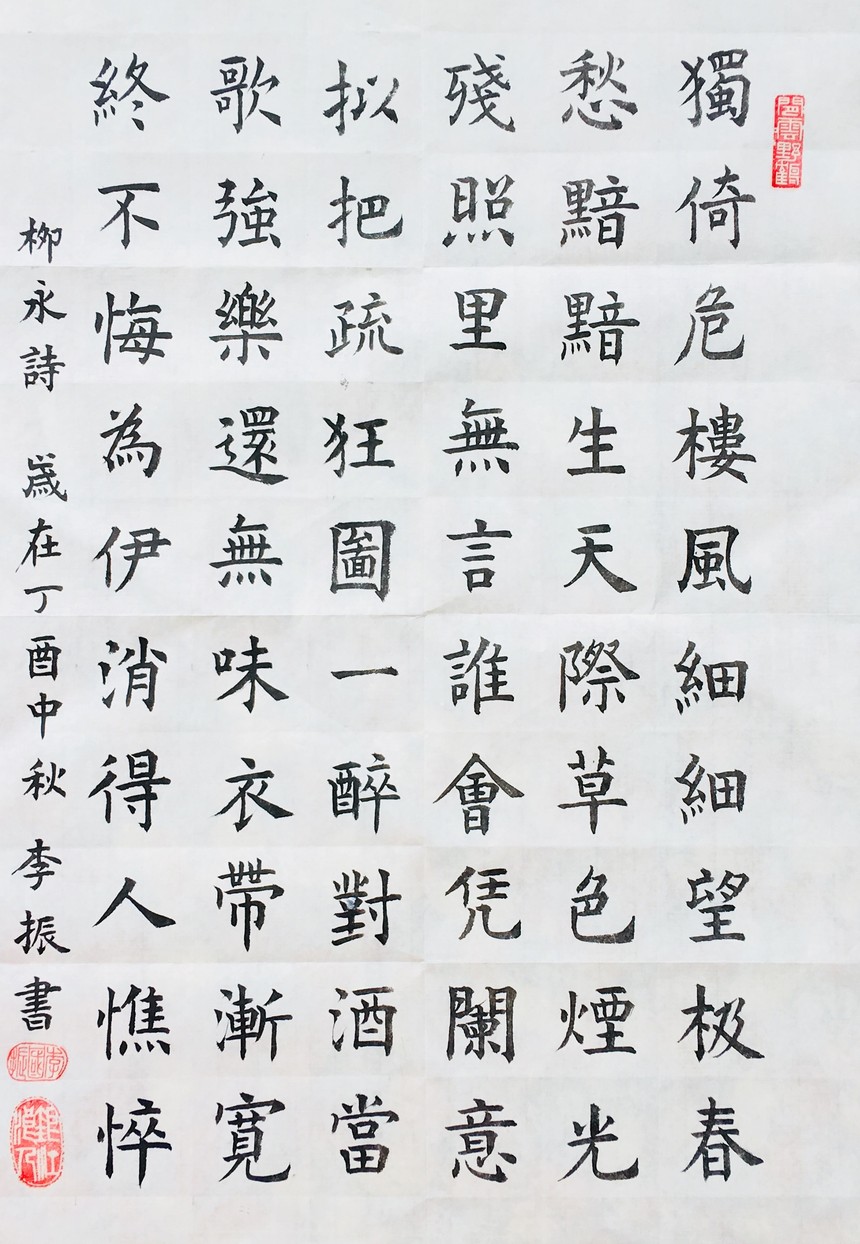 閒雲野鶴
獨倚危樓風細細望极春
愁黯黯生天際草色煙光
殘照里無言誰會凭闌意
拟把疏狂圖一醉對酒當
歌強樂還無味衣帶漸寬
終不悔為伊消得人憔悴
柳永詩 歲在丁酉中秋 李振書